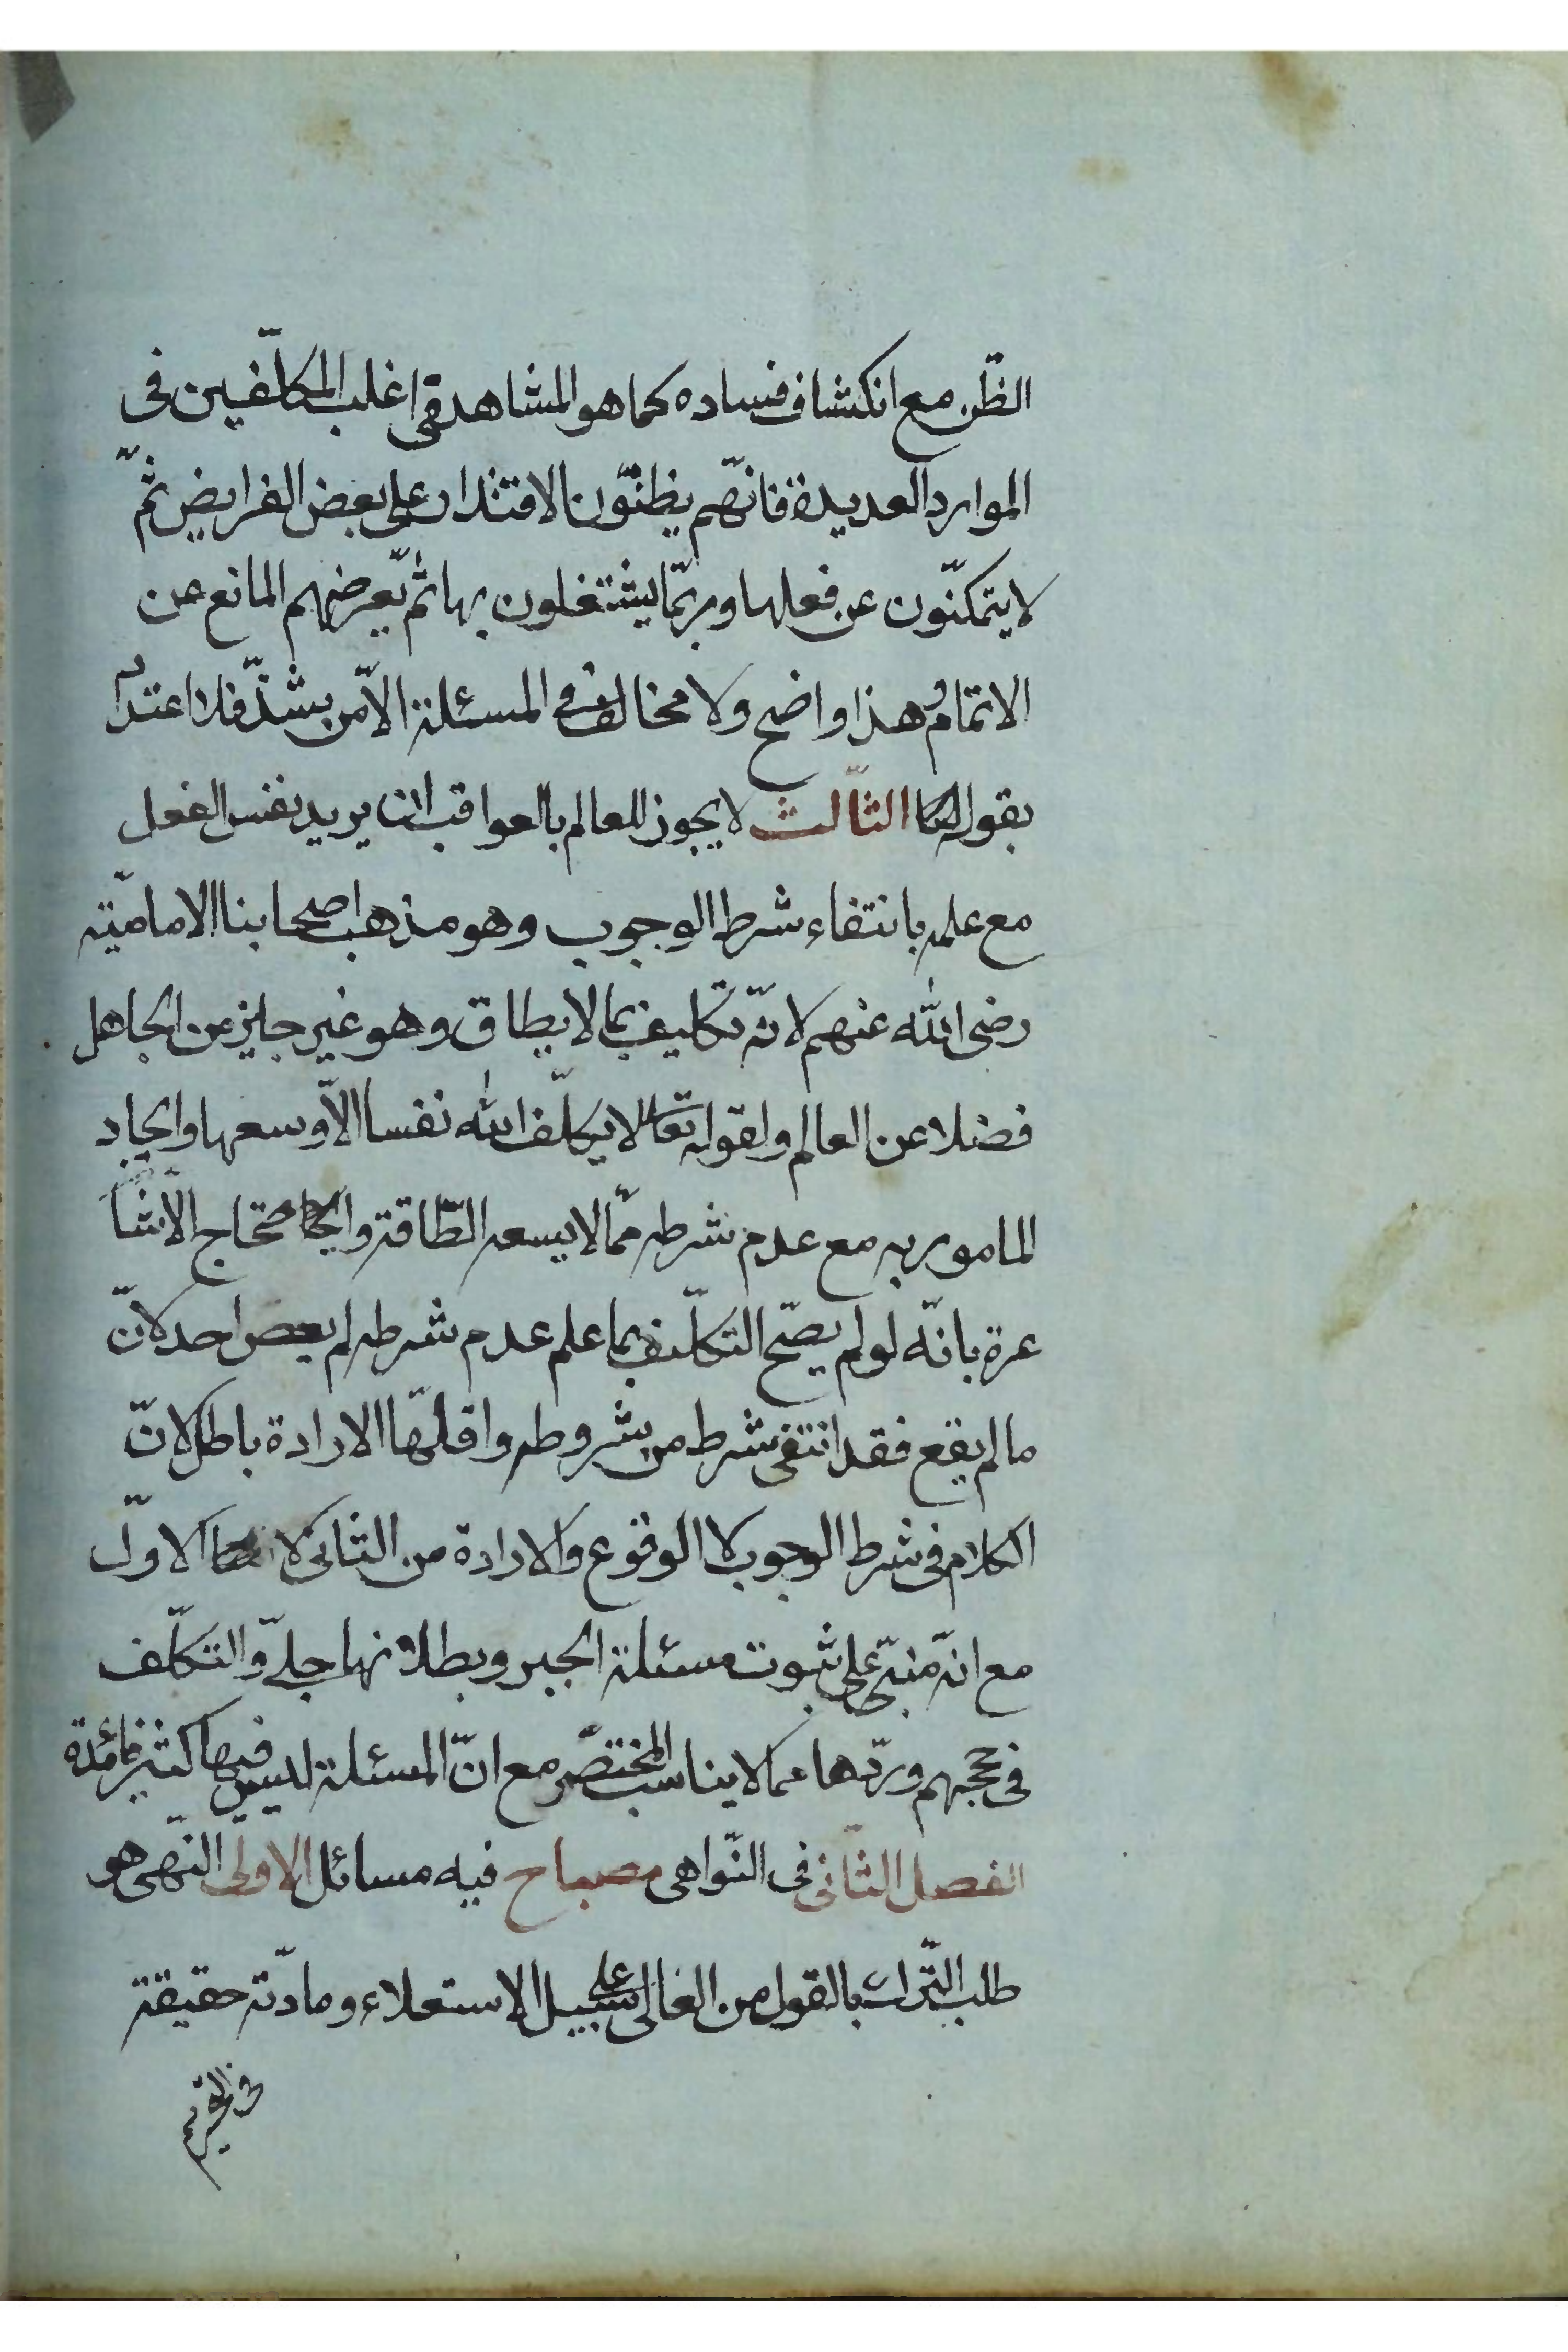 الظّن مع انكشاف فساده كما هو المشاهد فى اغلب المكلّفين فى
الموارد العديدة فانّهم يظنّون الاقتدار على بعض الفرايض ثمّ
لا يتمكنّون عن فعلها وربّما يشتغلون بها ثمّ يعرضهم المانع عن
الاتمام وهذا واضح ولا مخالف فى المسئلة الّا من يشذّ فلا اعتداد
بقوله الثّالث لا يجوز للعالم بالعواقب ان يريد نفس الفعل
مع علمه بانتفاء شرط الوجوب وهو مذهب اصحابنا الاماميّة
رضى الله عنهم لانّه تكليف بما لا يطاق وهو غير جايز عن الجاهل
فضلا عن العالم ولقوله تعالى لا يكلّف الله نفسا الّا وسعها وايجاد
المامور به مع عدم شرطه ممّا لا يسعه الطّاقة واحتجاج الاشا
عرة بانّه لو لم يصّح التكلّيف بما علم عدم شرطه لم يعص احد لانّ
ما لم يقع فقد انتفى شرط من شروطه واقلّها الارادة باطل لانّ
الكلام فى شرط الوجوب لا الوقوع والارادة من الثانى لا الاوّل
مع انّه مبنىّ على ثبوت مسئلة الجبر وبطلانها جلىّ والتكلّف
فى حججهم وردّها مما لا يناسب المختصر مع انّ المسئلة ليس فيها كثير فائدة
الفصل الثّانى فى النّواهى مصباح فيه مسائل الاولى النّهى هو
طلب التّرك بالقول من العالى على سبيل الاستعلاء ومادّته حقيقة
فى التحريم